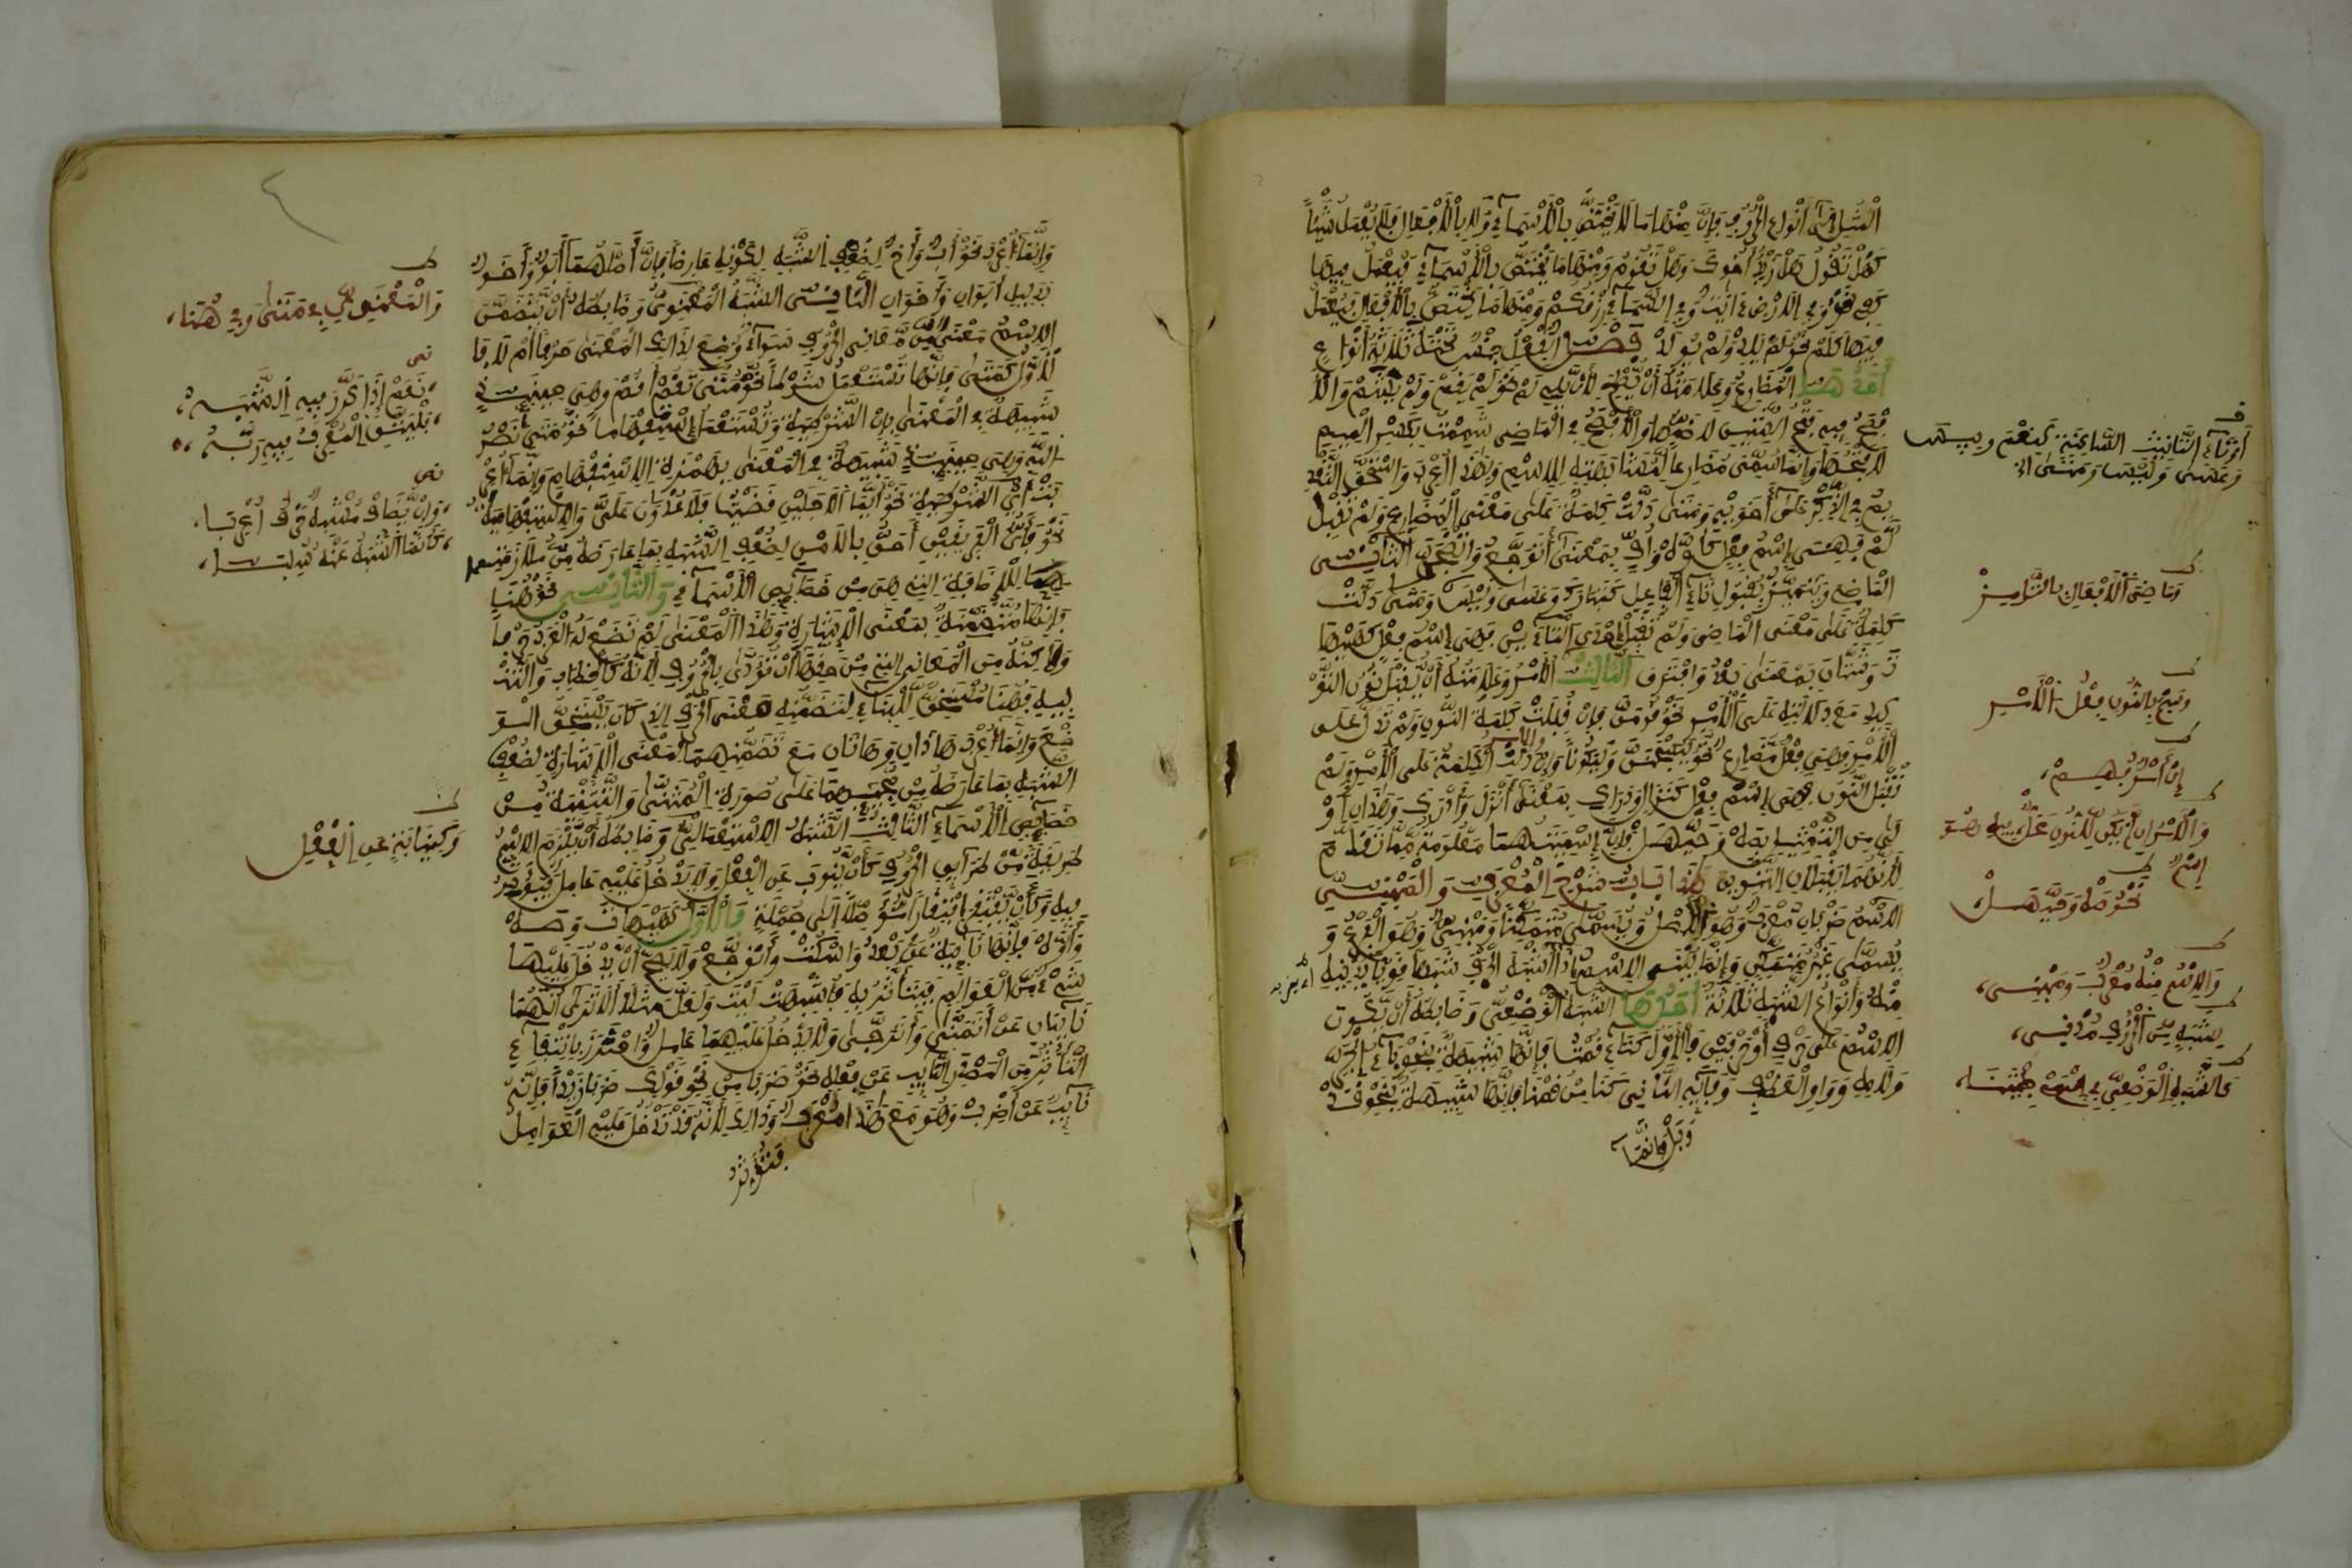 الْمِثَالِ إلى أنواع الحروف فإن منها ما لا يختص بالأسماء ولا بالأفعال فلا يعمل شيئا
كهل تقول هل زيد أخوك وهل تقوم ومنها ما يختص بالأسماء فيعمل فيها
كفي نحو وفي الارض ءايت وفي السماء رزقكم ومنها ما يختص بالأفعال فيعمل
فيها كلم نحو لم يلد ولم يولد فصل الفعل جنس تحته ثلاثة أنواع
أحدها المضارع وعلامته أن يصلح لأن يلي لم نحو لم يقم ولم يشم والأ
فصح فيه فتح الشين لا ضمها والأفصح في الماضي شممت بكسر الميم
لا فتحها وإنما سمي مضارعا لمشابهته للاسم ولهذا أعرب واستحق التقد
يم في الذكر على أخويه ومتى دلت كلمة على معنى المضارع ولم تقبل
لم فهي اسم فعل كأوه وأف بمعنى أتوجع وأتضجر الثاني
الماضي ويتميز بقبول تاء الفاعل كتبارك وعسى وليس ومتى دلت
كلمة على معنى الماضي ولم تقبل إحدى التاءين فهي اسم فعل كهيها
ت وشتان بمعنى بعد وافترق الثالث الأمر وعلامته أن يقبل نون التو
كيد مع دلالته على الأمر نحو قومن فإن قبلت كلمة النون ولم تدل على
الأمر فهي فعل مضارع نحو ليسجنن وليكونا وإن دلت الكلمة على الأمر ولم
تقبل النون فهي اسم فعل كنزال ودراك بمعنى أنزل وأدرك وهذان أو
لى من التمثيل بصه وحيهل فإن اسميتهما معلومة مما تقدم
لأنهما يقبلان التنوين هذا باب شرح المعرب والمبني
الاسم ضربان معرب وهو الأصل ويسمى متمكنا ومبني وهو الفرع و
يسمى غير متمكن وإنما يبنى الاسم إذا أشبه الحرف شبها قويا يدنيه
منه وأنواع الشبه ثلاثة أحدها الشبه الوضعي وضابطه أن يكون
الاسم على حرف أو حرفين فالأول كتاء قمت فإنها شبيهة بنحو باء الجر
ولامه وواو العطف وفائه الثاني كنا من قمنا فإنها شبيهة بنحو قد
وبل وإنما
أو تاء التانيث الساكنة كنعم وبيس
وعسى وليس
وماضي الأفعال بالتا مز
وسم بالنون فعل الأمر
إن أمر فهم
والأمر إن لم يك للنون محل فيه هو
اسم
نحو صه وحيهل
والاسم منه معرب ومبني
لشبه من الحروف مدني
كالشبه الوضعي في اسمي جئتنا
وإنما أعرب نحو أب وأخ لضعف الشبه لكونه عارضا فإن أصلهما أبو وأخو
بدليل أبوان وأخوان الثاني الشبه المعنوي وضابطه أن يتضمن
الاسم معنى من معاني الحروف سواء وضع لذالك المعنى حرف أم لا فا
لأول كمتى فإنها تستعمل شرطا نحو متى تقم أقم وهي حينئذ
شبيهة في المعنى بإن الشرطية وتستعمل استفهاما نحو متى نصر
الله وهي حينئذ شبيهة في المعنى بهمزة الاستفهام وإنما أعر
بت أي الشرطية نحو أيما الأجلين قضيت فلا عدوان علي والاستفهامية
نحو فأي الفريقين أحق بالأمن لضعف الشبه بما عارضه من ملازمتـ
هما للإضافة التي هي من خصائص الأسماء والثاني نحو هنا
فإنها متضمنة بمعنى الإشارة وهذا المعنى لم تضع له العرب حرفا
ولكنه من المعاني التي من حقها أن تؤدى بالحروف لأنه كالخطاب والتنبـ
يه فهنا مستحق للبناء لتضمنه معنى الحرف الذي كان يستحق الو
ضع وإنما أعرب هاذان وهاتان مع تضمنهما لمعنى الإشارة لضعف
الشبه بما عارضه من مجيئهما على صورة المثنى والتثنية من
خصائص الأسماء الثالث الشبه الاستعمالي وضابطه أن يلزم الاسم
طريقة من طرائق الحروف كأن ينوب عن الفعل ولا يدخل عليه عامل فيوثر
فيه وكأن يفتقر افتقارا متأصلا إلى جملة فالأول كهيهات وصه
وأوه فإنها نائبة عن بعد واسكت وأتوجع ولا يصح أن يدخل عليها
شيء من العوامل فتتأثر به فأشبهت ليت ولعل مثلا ألا ترى أنهما
نائبان عن أتمنى وأترجى ولا يدخل عليهما عامل واحترز بانتفاء
التأثر من المصدر النائب عن فعله نحو ضربا من نحو قولك ضربا زيدا فإنه
نائب عن أضرب وهو مع هذا معرب وذالك لأنه قد تدخل عليه العوامل
فتؤثر
والمعنوي في متى وفي هنا
نعم إذا كرر فيه الشبه
وإن يضاف
وكنيابة عن الفعل